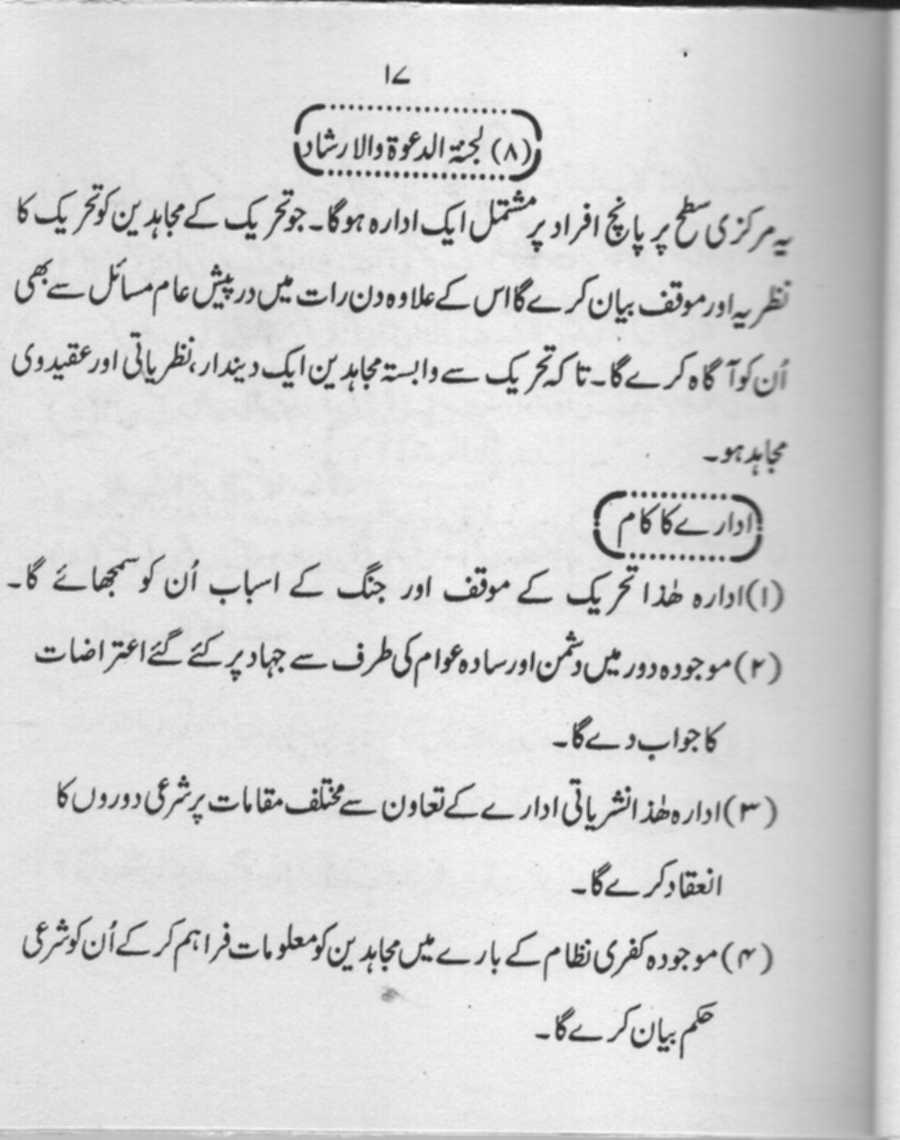 ۱۷
(۸) لجنۃ الدعوۃ والارشاد
یہ مرکزی سطح پر پانچ افراد پر مشتمل ایک ادارہ ہوگا۔ جو تحریک کے مجاہدین کو تحریک کا
نظریہ اور موقف بیان کرے گا اس کے علاوہ دن رات میں درپیش عام مسائل سے بھی
اُن کو آگاہ کرے گا۔ تاکہ تحریک سے وابستہ مجاہدین ایک دیندار، نظریاتی اور عقیدوی
مجاہد ہو۔
ادارے کا کام
(۱) ادارہ ھٰذا تحریک کے موقف اور جنگ کے اسباب اُن کو سمجھائے گا۔
(۲) موجودہ دور میں دشمن اور سادہ عوام کی طرف سے جہاد پر کئے گئے اعتراضات
کا جواب دے گا۔
(۳) ادارہ ھٰذا نشریاتی ادارے کے تعاون سے مختلف مقامات پر شرعی دوروں کا
انعقاد کرے گا۔
(۴) موجودہ کفری نظام کے بارے میں مجاہدین کو معلومات فراہم کر کے اُن کو شرعی
حکم بیان کرے گا۔